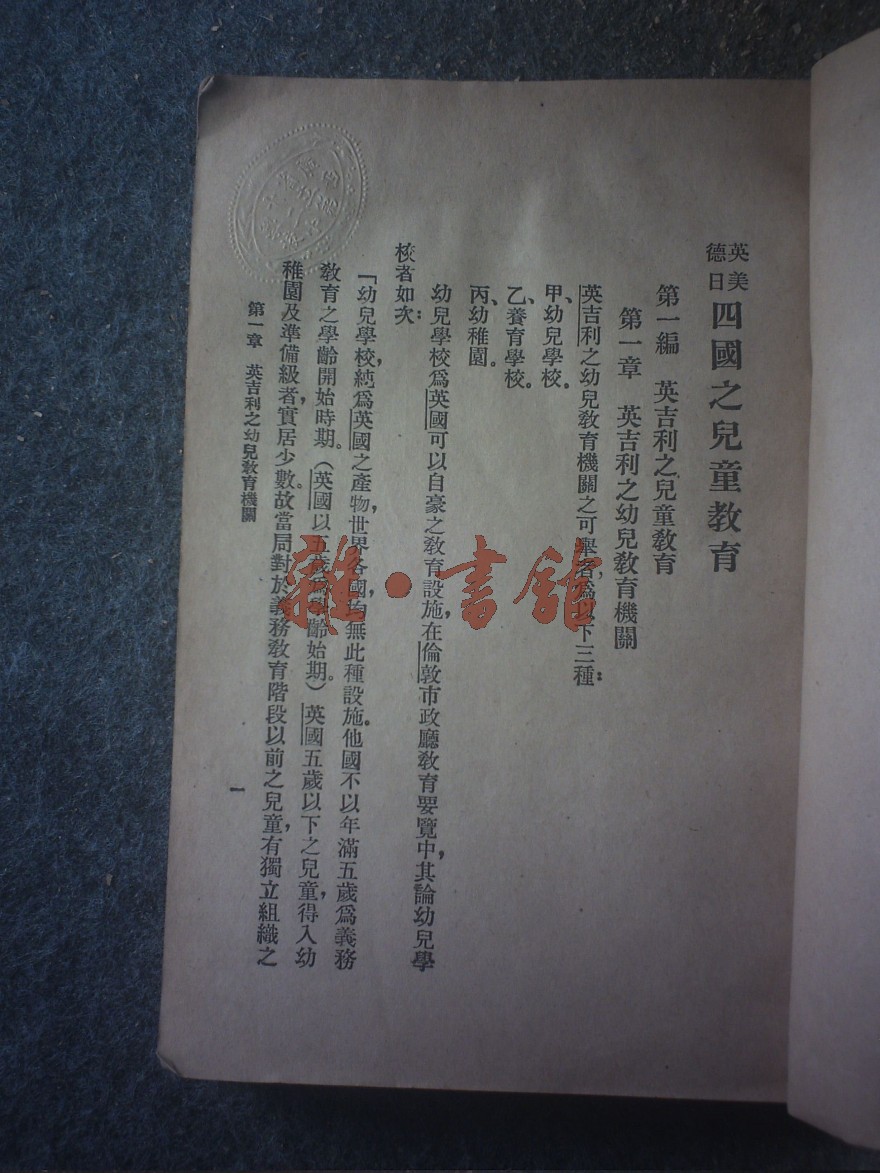 英美德日四國之兒童教育
第一編　英吉利之兒童教育
第一章　英吉利之幼兒教育機關
英吉利之幼兒教育機關之可舉者，為以下三種：
甲、幼兒學校。
乙、養育學校。
丙、幼稚園。
幼兒學校爲英國可以自豪之教育設施，在倫敦市政廳教育要覽中，其論幼兒學
校者如次：
「幼兒學校，純爲英國之產物，世界各國，均無此種設施。他國不以年滿五歲爲義務
教育之學齡開始時期。（英國以五歲爲學齡始期。）英國五歲以下之兒童，得入幼
稚園及準備級者，實居少數。故當局對於義務教育階段以前之兒童，有獨立組織之
第一章　英吉利之幼兒教育機關
一
雜·書館